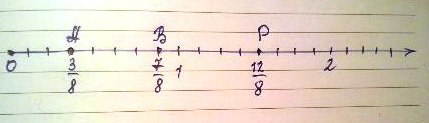 А В Р
0 3/8 7/8 1 12/8 2